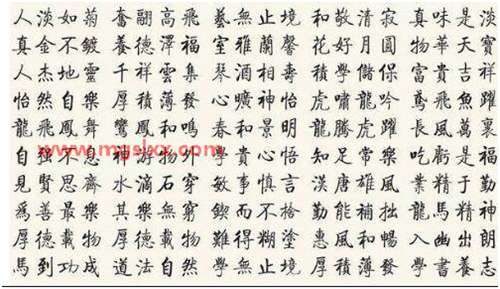 人淡如菊 奮翮高飛 藝無止境 和敬清寂 真味是淡
真金不鍍 養德澤福 室雅蘭馨 花好月圓 物華天寶
人杰地靈 千祥雲集 琴酒相壽 積學儲保 富貴吉祥
怡然自樂 厚積薄發 心曠神怡 虎嘯龍吟 鳶飛魚躍
龍飛鳳舞 鸞鳳和鳴 春和景明 龍騰虎躍 長風萬裏
自強不息 神游物外 貴心悟 知足常樂 吃虧是福
見賢思齊 水滴石穿 敏事慎言 漢唐雄風 業精于勤
為善最樂 其樂無窮 鍥而不捨 勤能補拙 龍馬精神
厚德載物 厚德載物 難得糊塗 惠風和暢 入幽出朗
馬到功成 道法自然 學無止境 厚積薄發 學書養志